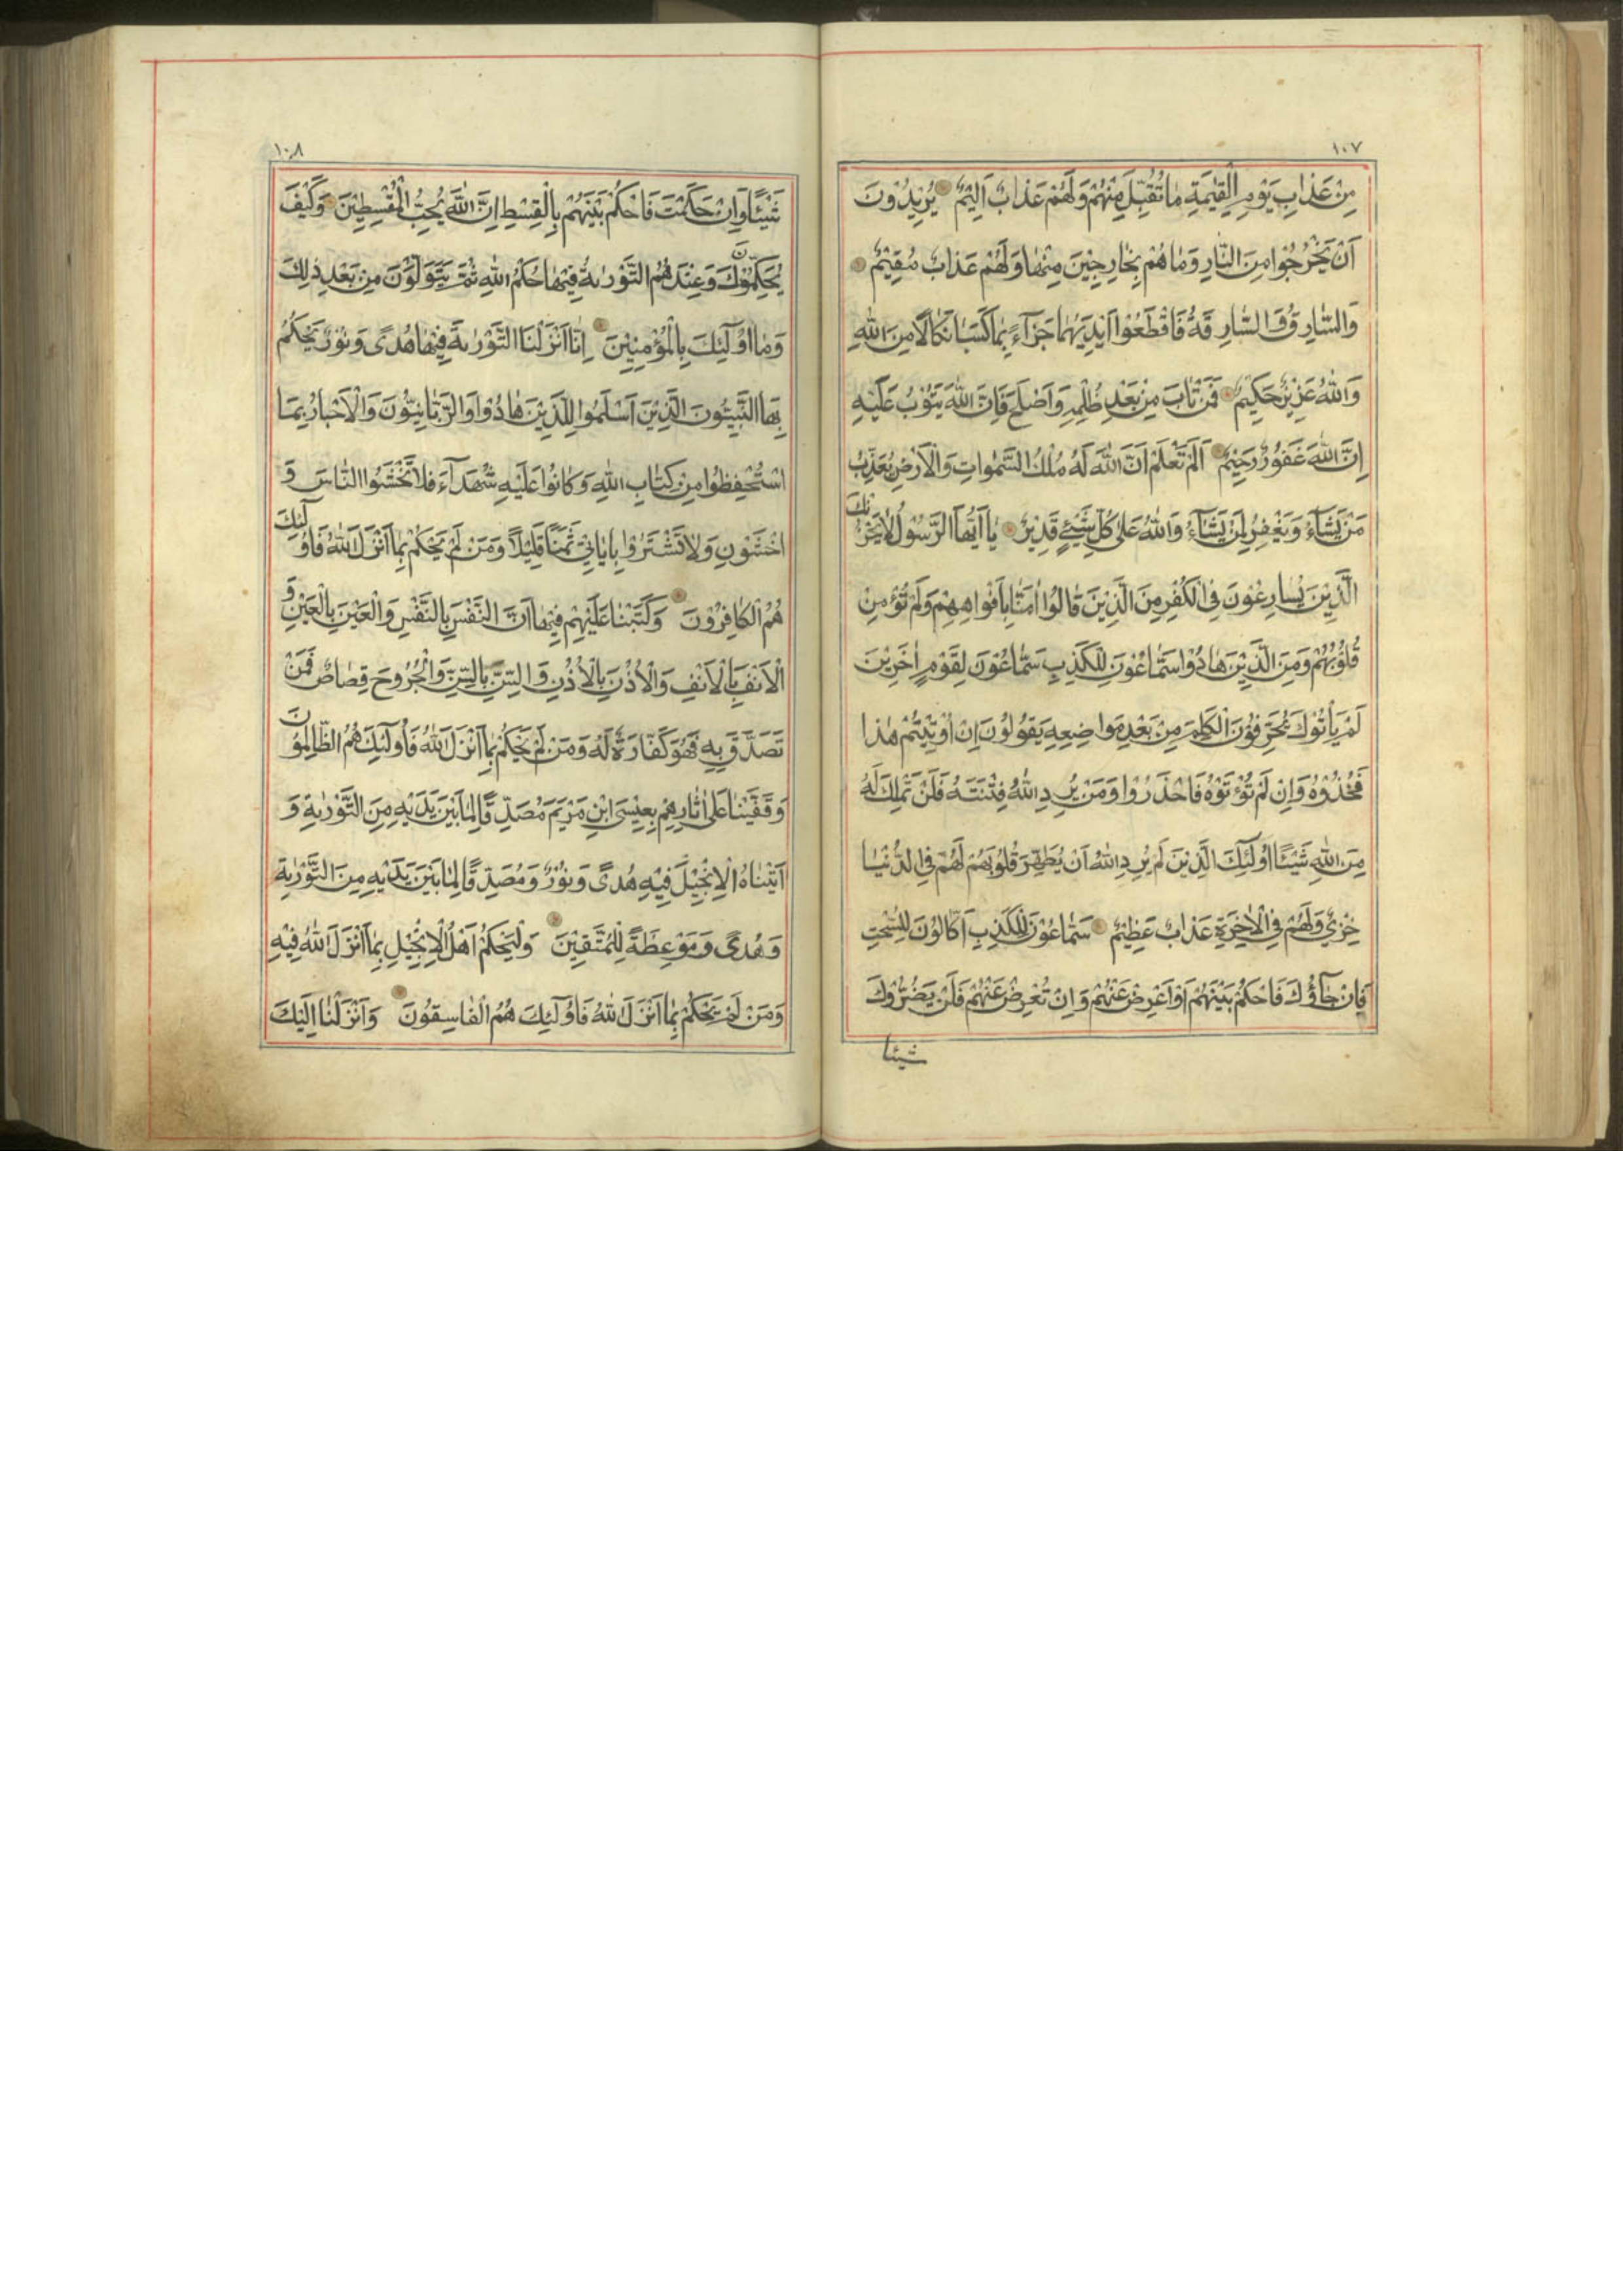 ١٠٧
مِنْ عَذَابِ يَوْمِ الْقِيٰمَةِ مَا تُقُبِّلَ مِنْهُمْ وَلَهُمْ عَذَابٌ اَلِيْمٌ يُرِيْدُوْنَ
اَنْ يَخْرُجُوْا مِنَ النَّارِ وَمَا هُمْ بِخَارِجِيْنَ مِنْهَا وَلَهُمْ عَذَابٌ مُقِيْمٌ
وَالسَّارِقُ وَالسَّارِقَةُ فَاقْطَعُوْا اَيْدِيَهُمَا جَزَآءً بِمَا كَسَبَا نَكَالًا مِنَ اللهِ
وَاللهُ عَزِيْزٌ حَكِيْمٌ فَمَنْ تَابَ مِنْ بَعْدِ ظُلْمِهِ وَاَصْلَحَ فَاِنَّ اللهَ يَتُوْبُ عَلَيْهِ
اِنَّ اللهَ غَفُوْرٌ رَحِيْمٌ اَلَمْ تَعْلَمْ اَنَّ اللهَ لَهُ مُلْكُ السَّمٰوَاتِ وَالْاَرْضِ يُعَذِّبُ
مَنْ يَشَآءُ وَيَغْفِرُ لِمَنْ يَشَآءُ وَاللهُ عَلٰى كُلِّ شَيْئٍ قَدِيْرٌ يَا اَيُّهَا الرَّسُوْلُ لَا يَحْزُنْكَ
الَّذِيْنَ يُسَارِعُوْنَ فِى الْكُفْرِ مِنَ الَّذِيْنَ قَالُوْا اٰمَنَّا بِاَفْوَاهِهِمْ وَلَمْ تُؤْمِنْ
قُلُوْبُهُمْ وَمِنَ الَّذِيْنَ هَادُوْا سَمَّاعُوْنَ لِلْكَذِبِ سَمَّاعُوْنَ لِقَوْمٍ اٰخَرِيْنَ
لَمْ يَاْتُوْكَ يُحَرِّفُوْنَ الْكَلِمَ مِنْ بَعْدِ مَوَاضِعِهِ يَقُوْلُوْنَ اِنْ اُوْتِيْتُمْ هٰذَا
فَخُذُوْهُ وَاِنْ لَمْ تُؤْتَوْهُ فَاحْذَرُوْا وَمَنْ يُرِدِ اللهُ فِتْنَتَهُ فَلَنْ تَمْلِكَ لَهُ
مِنَ اللهِ شَيْئًا اُولٰٓئِكَ الَّذِيْنَ لَمْ يُرِدِ اللهُ اَنْ يُطَهِّرَ قُلُوْبَهُمْ لَهُمْ فِى الدُّنْيَا
خِزْيٌ وَلَهُمْ فِى الْاٰخِرَةِ عَذَابٌ عَظِيْمٌ سَمَّاعُوْنَ لِلْكَذِبِ اَكَّالُوْنَ لِلسُّحْتِ
فَاِنْ جَآؤُكَ فَاحْكُمْ بَيْنَهُمْ اَوْ اَعْرِضْ عَنْهُمْ وَاِنْ تُعْرِضْ عَنْهُمْ فَلَنْ يَضُرُّوْكَ
شيئا
١٠٨
شَيْئًا وَاِنْ حَكَمْتَ فَاحْكُمْ بَيْنَهُمْ بِالْقِسْطِ اِنَّ اللهَ يُحِبُّ الْمُقْسِطِيْنَ وَكَيْفَ
يُحَكِّمُوْنَكَ وَعِنْدَهُمُ التَّوْرٰيةُ فِيْهَا حُكْمُ اللهِ ثُمَّ يَتَوَلَّوْنَ مِنْ بَعْدِ ذٰلِكَ
وَمَا اُولٰٓئِكَ بِالْمُؤْمِنِيْنَ اِنَّا اَنْزَلْنَا التَّوْرٰيةَ فِيْهَا هُدًى وَنُوْرٌ يَحْكُمُ
بِهَا النَّبِيُّوْنَ الَّذِيْنَ اَسْلَمُوْا لِلَّذِيْنَ هَادُوْا وَالرَّبَّانِيُّوْنَ وَالْاَحْبَارُ بِمَا
اسْتُحْفِظُوْا مِنْ كِتَابِ اللهِ وَكَانُوْا عَلَيْهِ شُهَدَآءَ فَلَا تَخْشَوُا النَّاسَ وَ
اخْشَوْنِ وَلَا تَشْتَرُوْا بِاٰيَاتِيْ ثَمَنًا قَلِيْلًا وَمَنْ لَمْ يَحْكُمْ بِمَا اَنْزَلَ اللهُ فَاُولٰٓئِكَ
هُمُ الْكَافِرُوْنَ وَكَتَبْنَا عَلَيْهِمْ فِيْهَا اَنَّ النَّفْسَ بِالنَّفْسِ وَالْعَيْنَ بِالْعَيْنِ وَ
الْاَنْفَ بِالْاَنْفِ وَالْاُذُنَ بِالْاُذُنِ وَالسِّنَّ بِالسِّنِّ وَالْجُرُوْحَ قِصَاصٌ فَمَنْ
تَصَدَّقَ بِهِ فَهُوَ كَفَّارَةٌ لَهُ وَمَنْ لَمْ يَحْكُمْ بِمَا اَنْزَلَ اللهُ فَاُولٰٓئِكَ هُمُ الظَّالِمُوْنَ
وَقَفَّيْنَا عَلٰى اٰثَارِهِمْ بِعِيْسَى ابْنِ مَرْيَمَ مُصَدِّقًا لِمَا بَيْنَ يَدَيْهِ مِنَ التَّوْرٰيةِ وَ
اٰتَيْنَاهُ الْاِنْجِيْلَ فِيْهِ هُدًى وَنُوْرٌ وَمُصَدِّقًا لِمَا بَيْنَ يَدَيْهِ مِنَ التَّوْرٰيةِ
وَهُدًى وَمَوْعِظَةً لِلْمُتَّقِيْنَ وَلْيَحْكُمْ اَهْلُ الْاِنْجِيْلِ بِمَا اَنْزَلَ اللهُ فِيْهِ
وَمَنْ لَمْ يَحْكُمْ بِمَا اَنْزَلَ اللهُ فَاُولٰٓئِكَ هُمُ الْفَاسِقُوْنَ وَاَنْزَلْنَا اِلَيْكَ